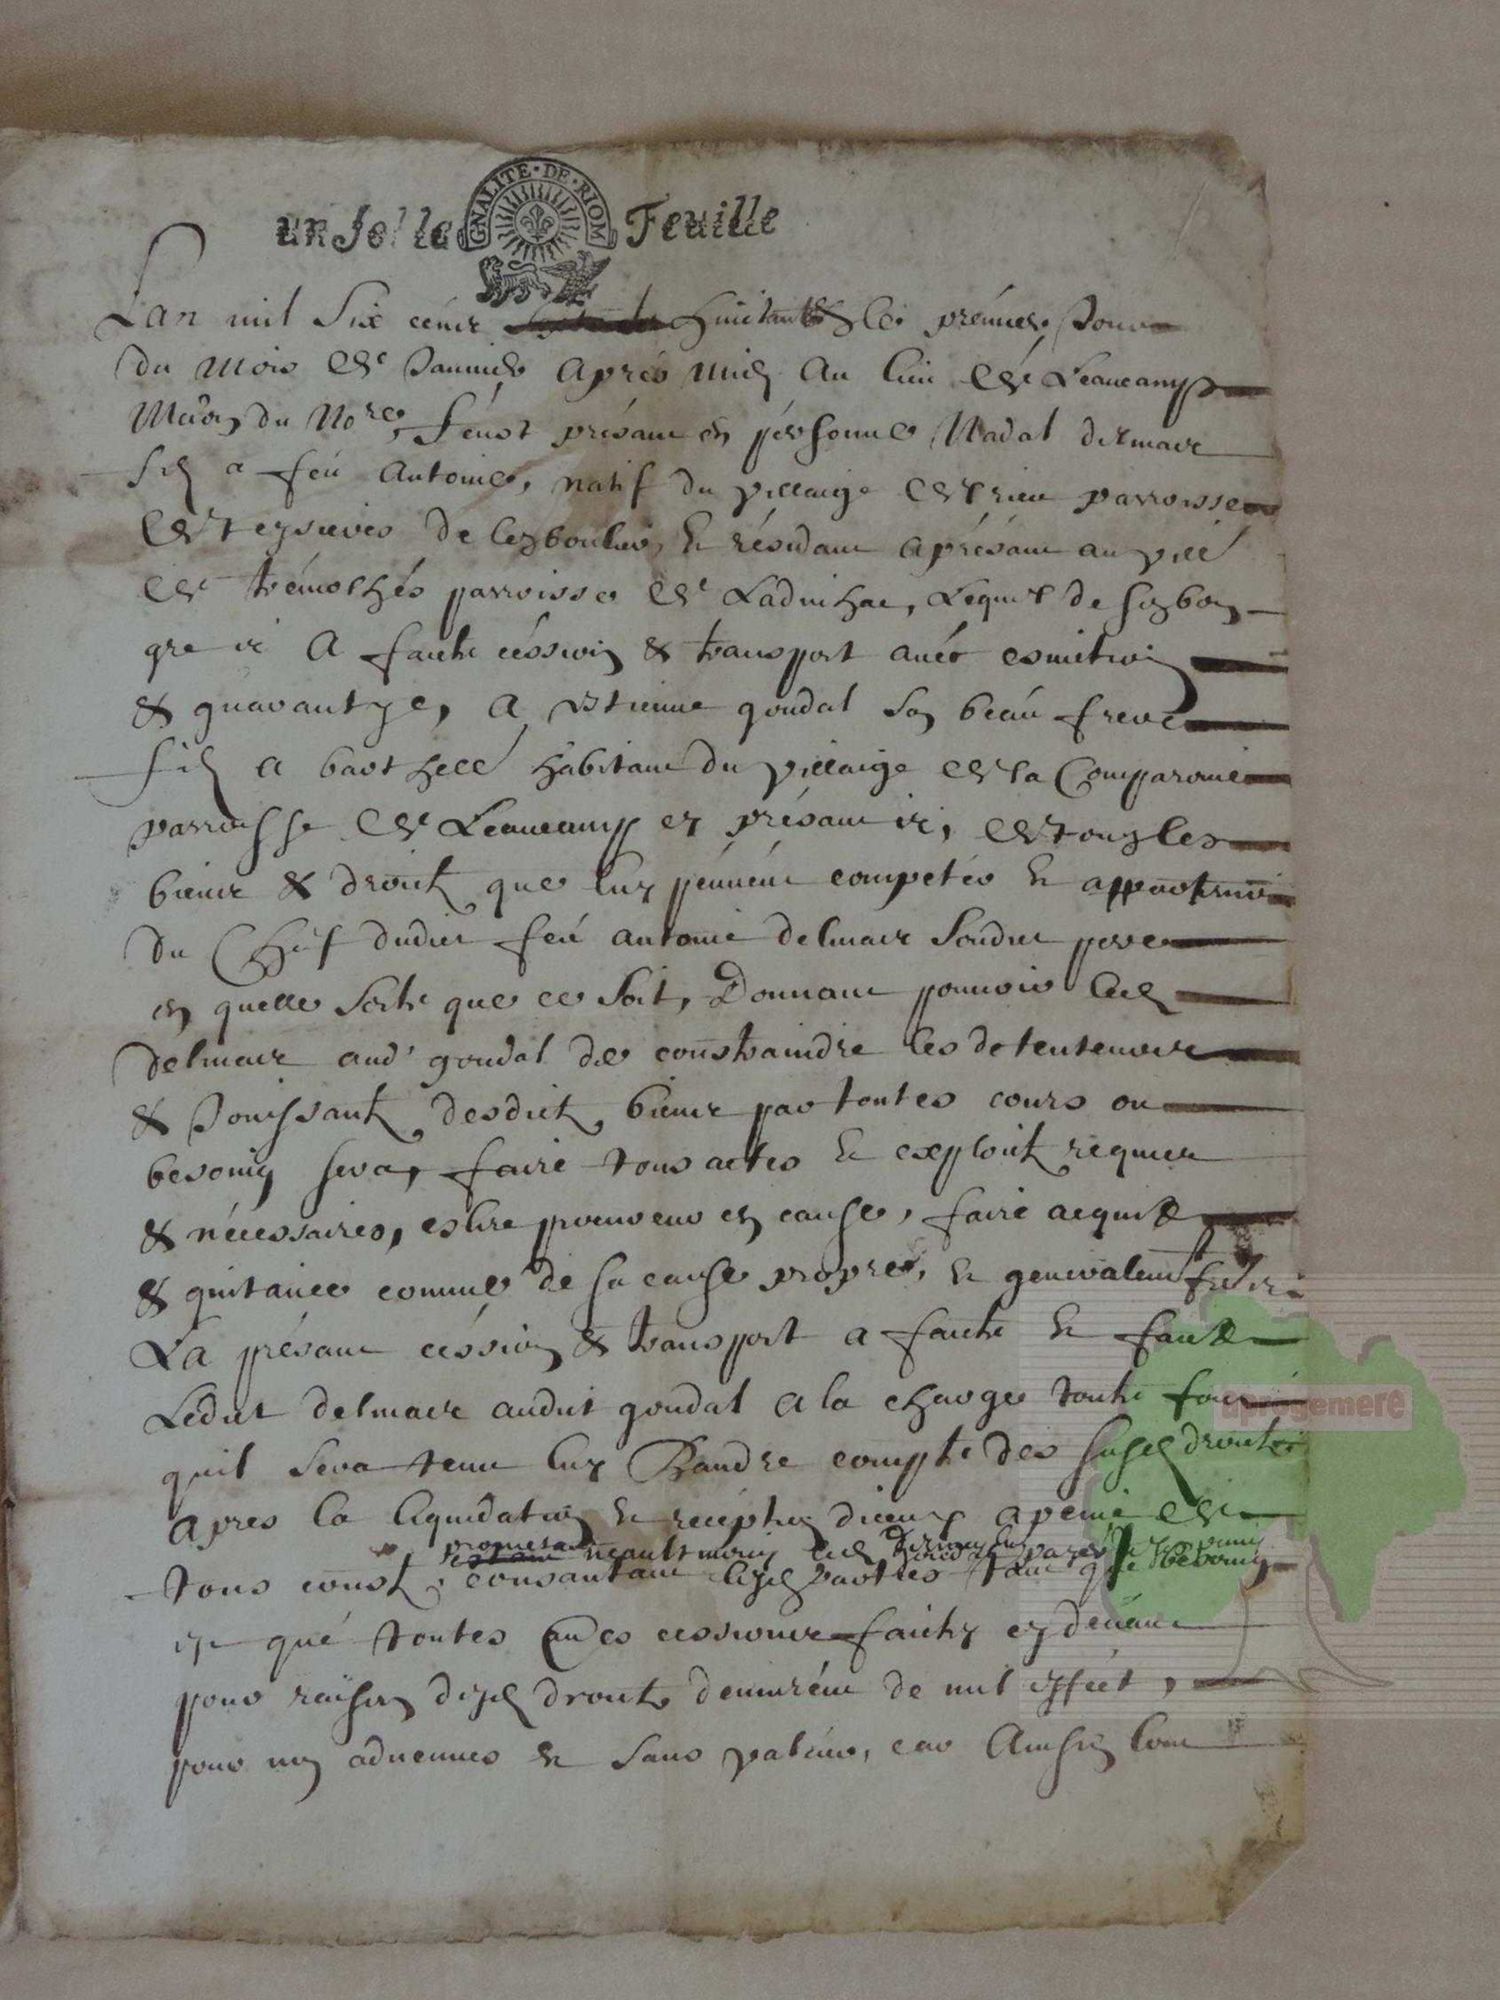 un sol la Feuille
GNALITE · DE · RIOM
Lan mil six cens huictante & le premier Jour
du mois de Janvier apres midy au lieu de Leaucamp
Maion du Nore, feust présant en personne Nadal delmair
filz a feu Antoine, natif du villaige de parroisse
de teyssieres de lesboulies, et résidant aprésant au villé
de trémolhés parroisse de Ladinhac, Lequel de son bon
gre ir a faicte cession & transport avec esmitioin
& guarantye, a Estienne goudal son beau frere
filz a barthelé habitant du villaige de la Comparonie
parroisse de Leaucamp et présant ir, de tous les
biens & droictz que luy peuvent competer et appartenir
du chef dudict feu antoine delmair sondict pere
en quelle sorte que ce soit, Donnant pouvoir led
delmair aud goudal de constraindre les detenteurs
& Jouissantz desdictz biens par toutes cours ou
besoing sera, faire tous actes et exploictz requis
& nécessaires, eslire procureur en cause, faire acquitz
& quitance comme de sa cause propre, et generalemt
La présant cession & transport a faicte et faict
Ledict delmair audict goudal a la charge toute
quil sera tenu luy Randre compte des susd droictz
apres la liquidation et reception diceux a peine de
tous coustz, consantant lesd parties tant que besoing
promesse
est que toutes au[tr]es cessions faictz cy devant
pour raison desd droictz demurent de nul effect,
pour non advenues et sans valeur, car Ainsin lont
aprogemere